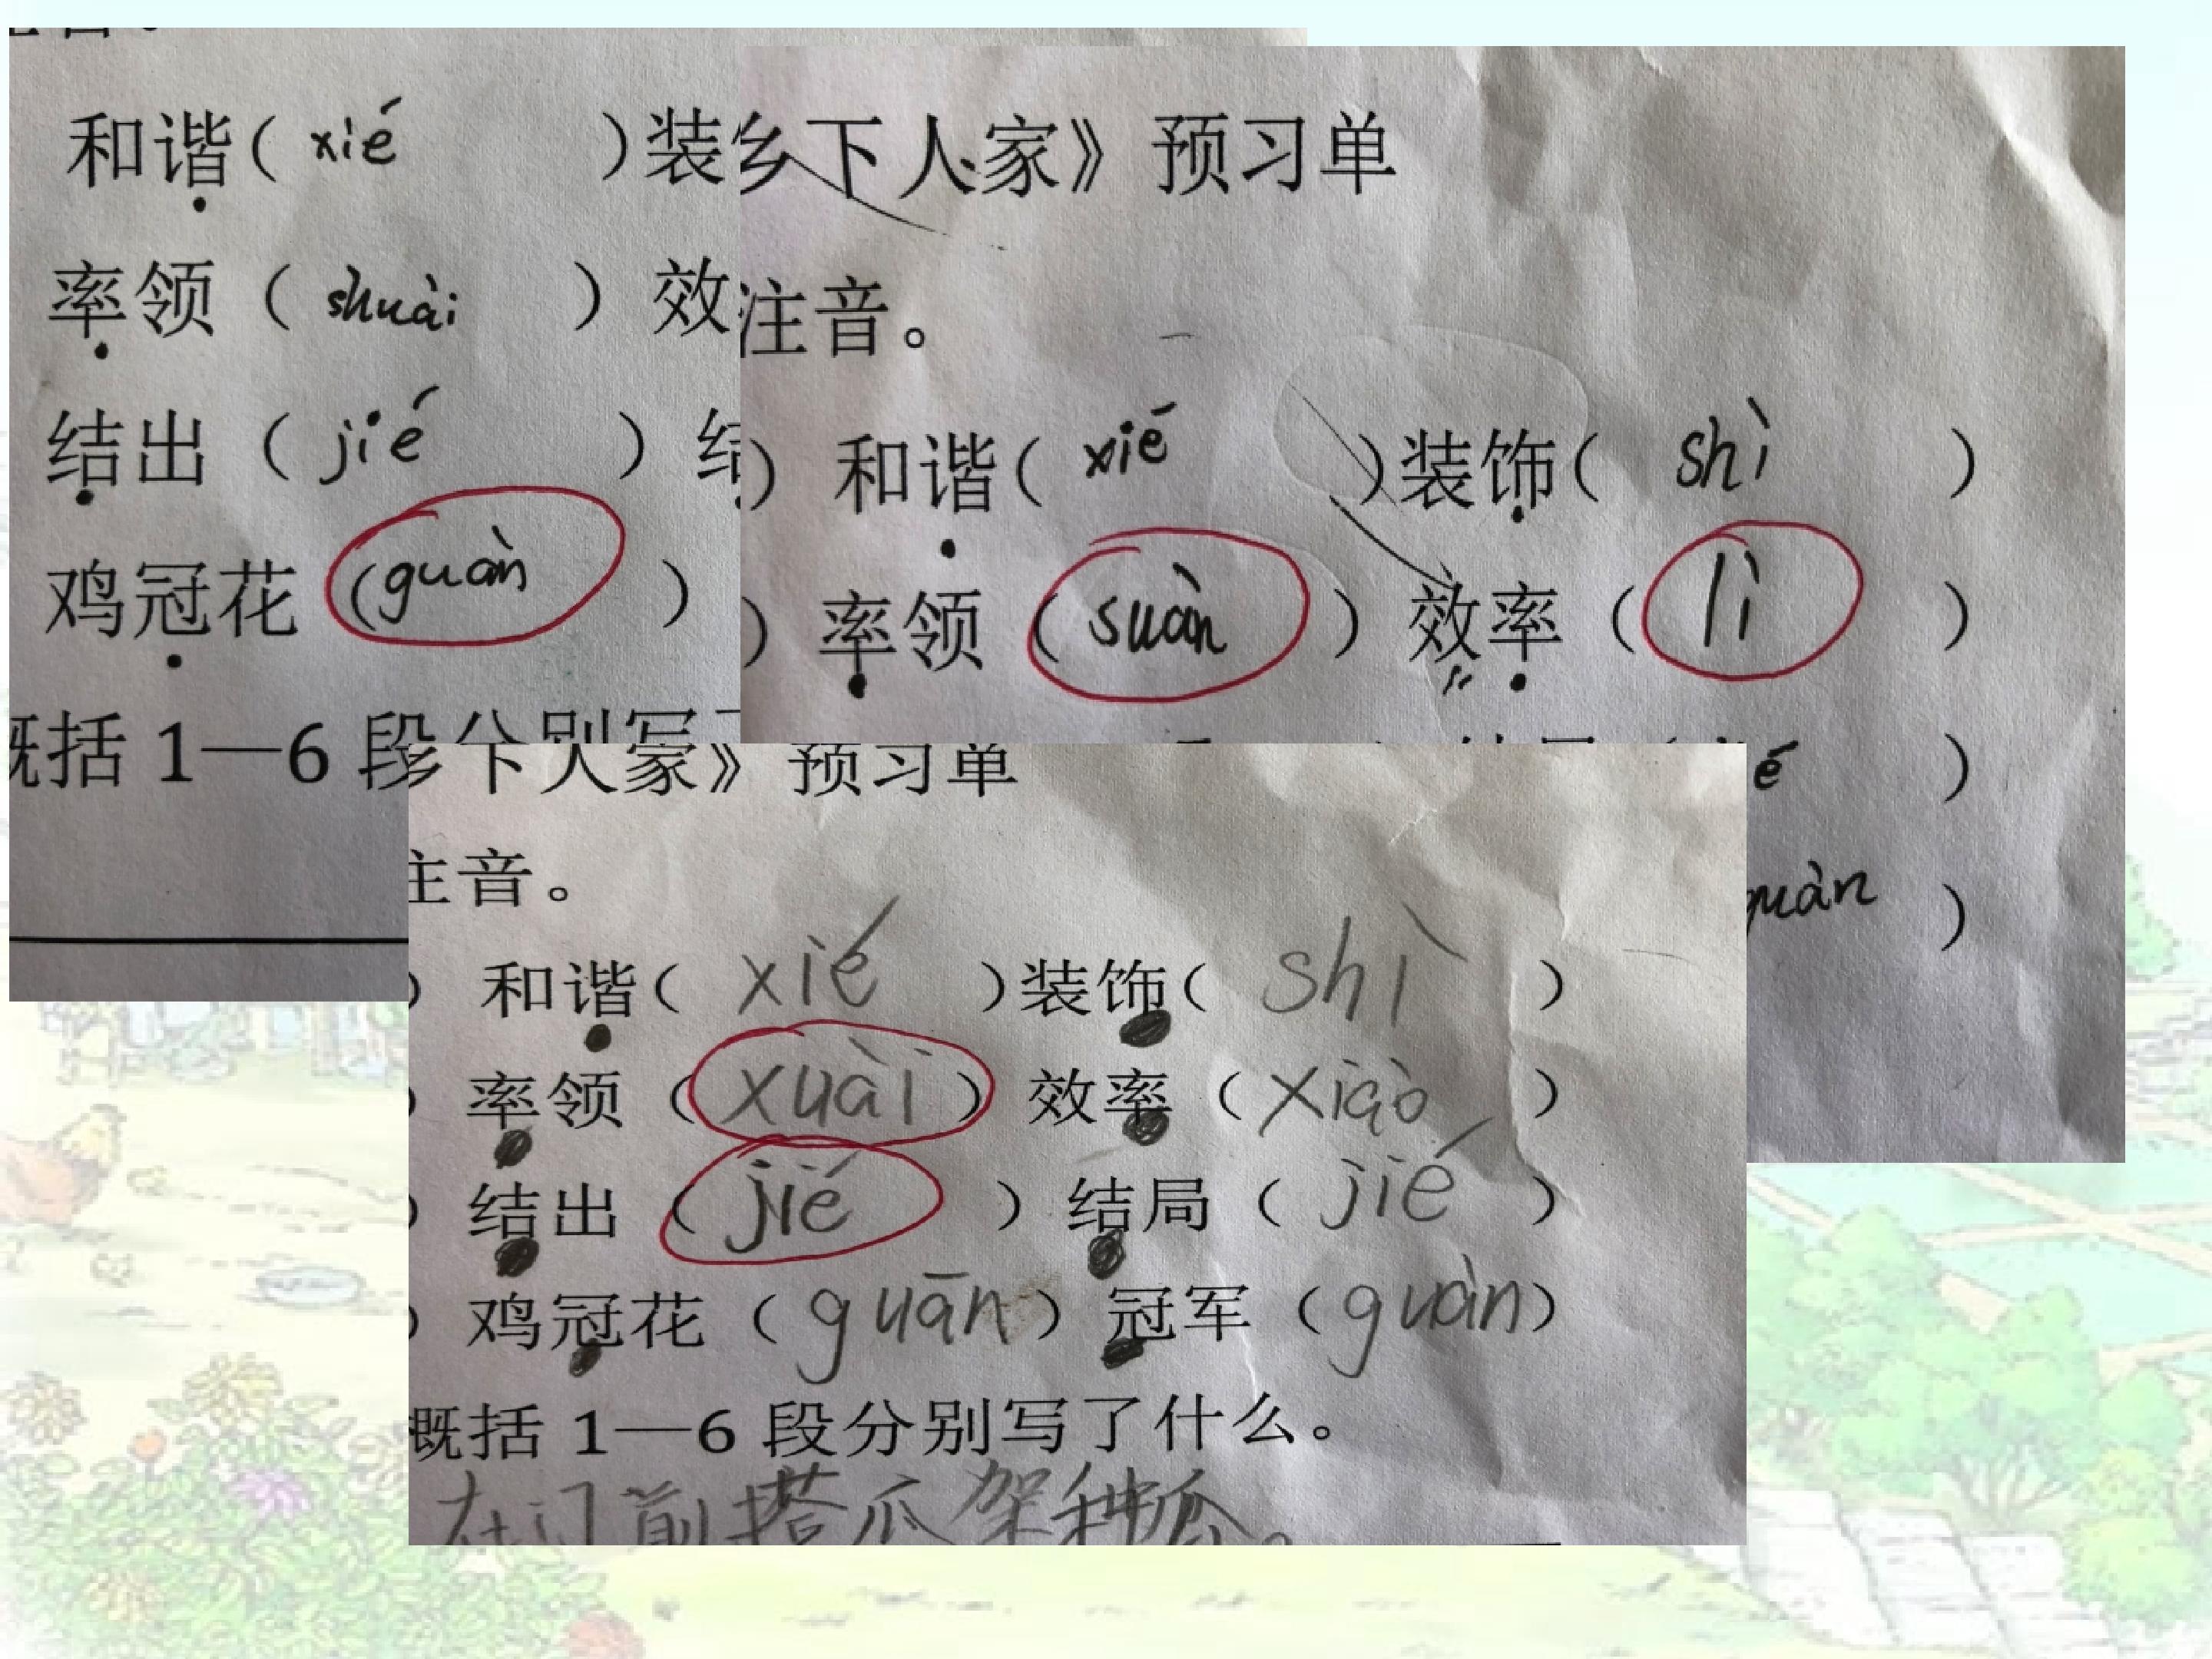 和谐( xié )装
率领( shuài )效
结出( jié )结
鸡冠花(guàn )
概括 1—6 段分别写
乡下人家》预习单
注音。
) 和谐( xié )装饰( shì )
) 率领( suàn )效率( lì )
é )
guàn )
乡下人家》预习单
注音。
) 和谐( xié )装饰( shì )
) 率领( xuài )效率( xiào )
) 结出( jié )结局( jié )
) 鸡冠花( guān )冠军( guàn)
概括 1—6 段分别写了什么。
在门前搭瓜架种瓜。